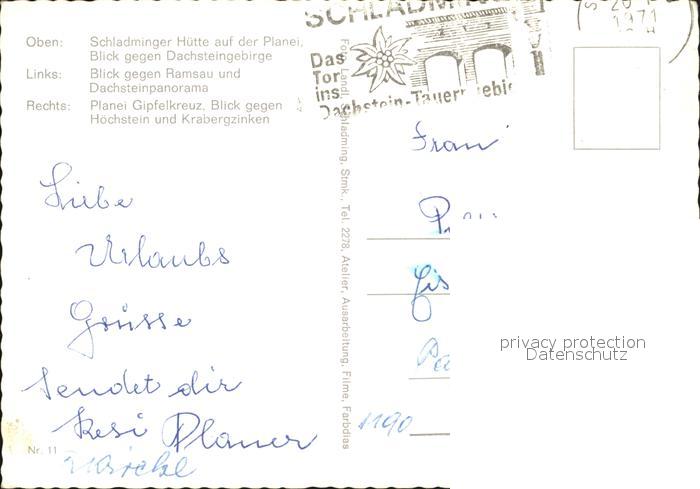 Oben: Schladminger Hütte auf der Planei,
Blick gegen Dachsteingebirge
Links: Blick gegen Ramsau und
Dachsteinpanorama
Rechts: Planei Gipfelkreuz, Blick gegen
Höchstein und Krabergzinken
SCHLADMI
Das
Tor
ins
Dachstein-Tauerngebie
1971
Liebe
Urlaubs
Grüsse
sendet dir
Resi Planer
Nr. 11
Foto Landl, Schladming, Stmk., Tel. 2278, Atelier, Ausarbeitung, Filme, Farbdias
Frau
1190
privacy protection
Datenschutz